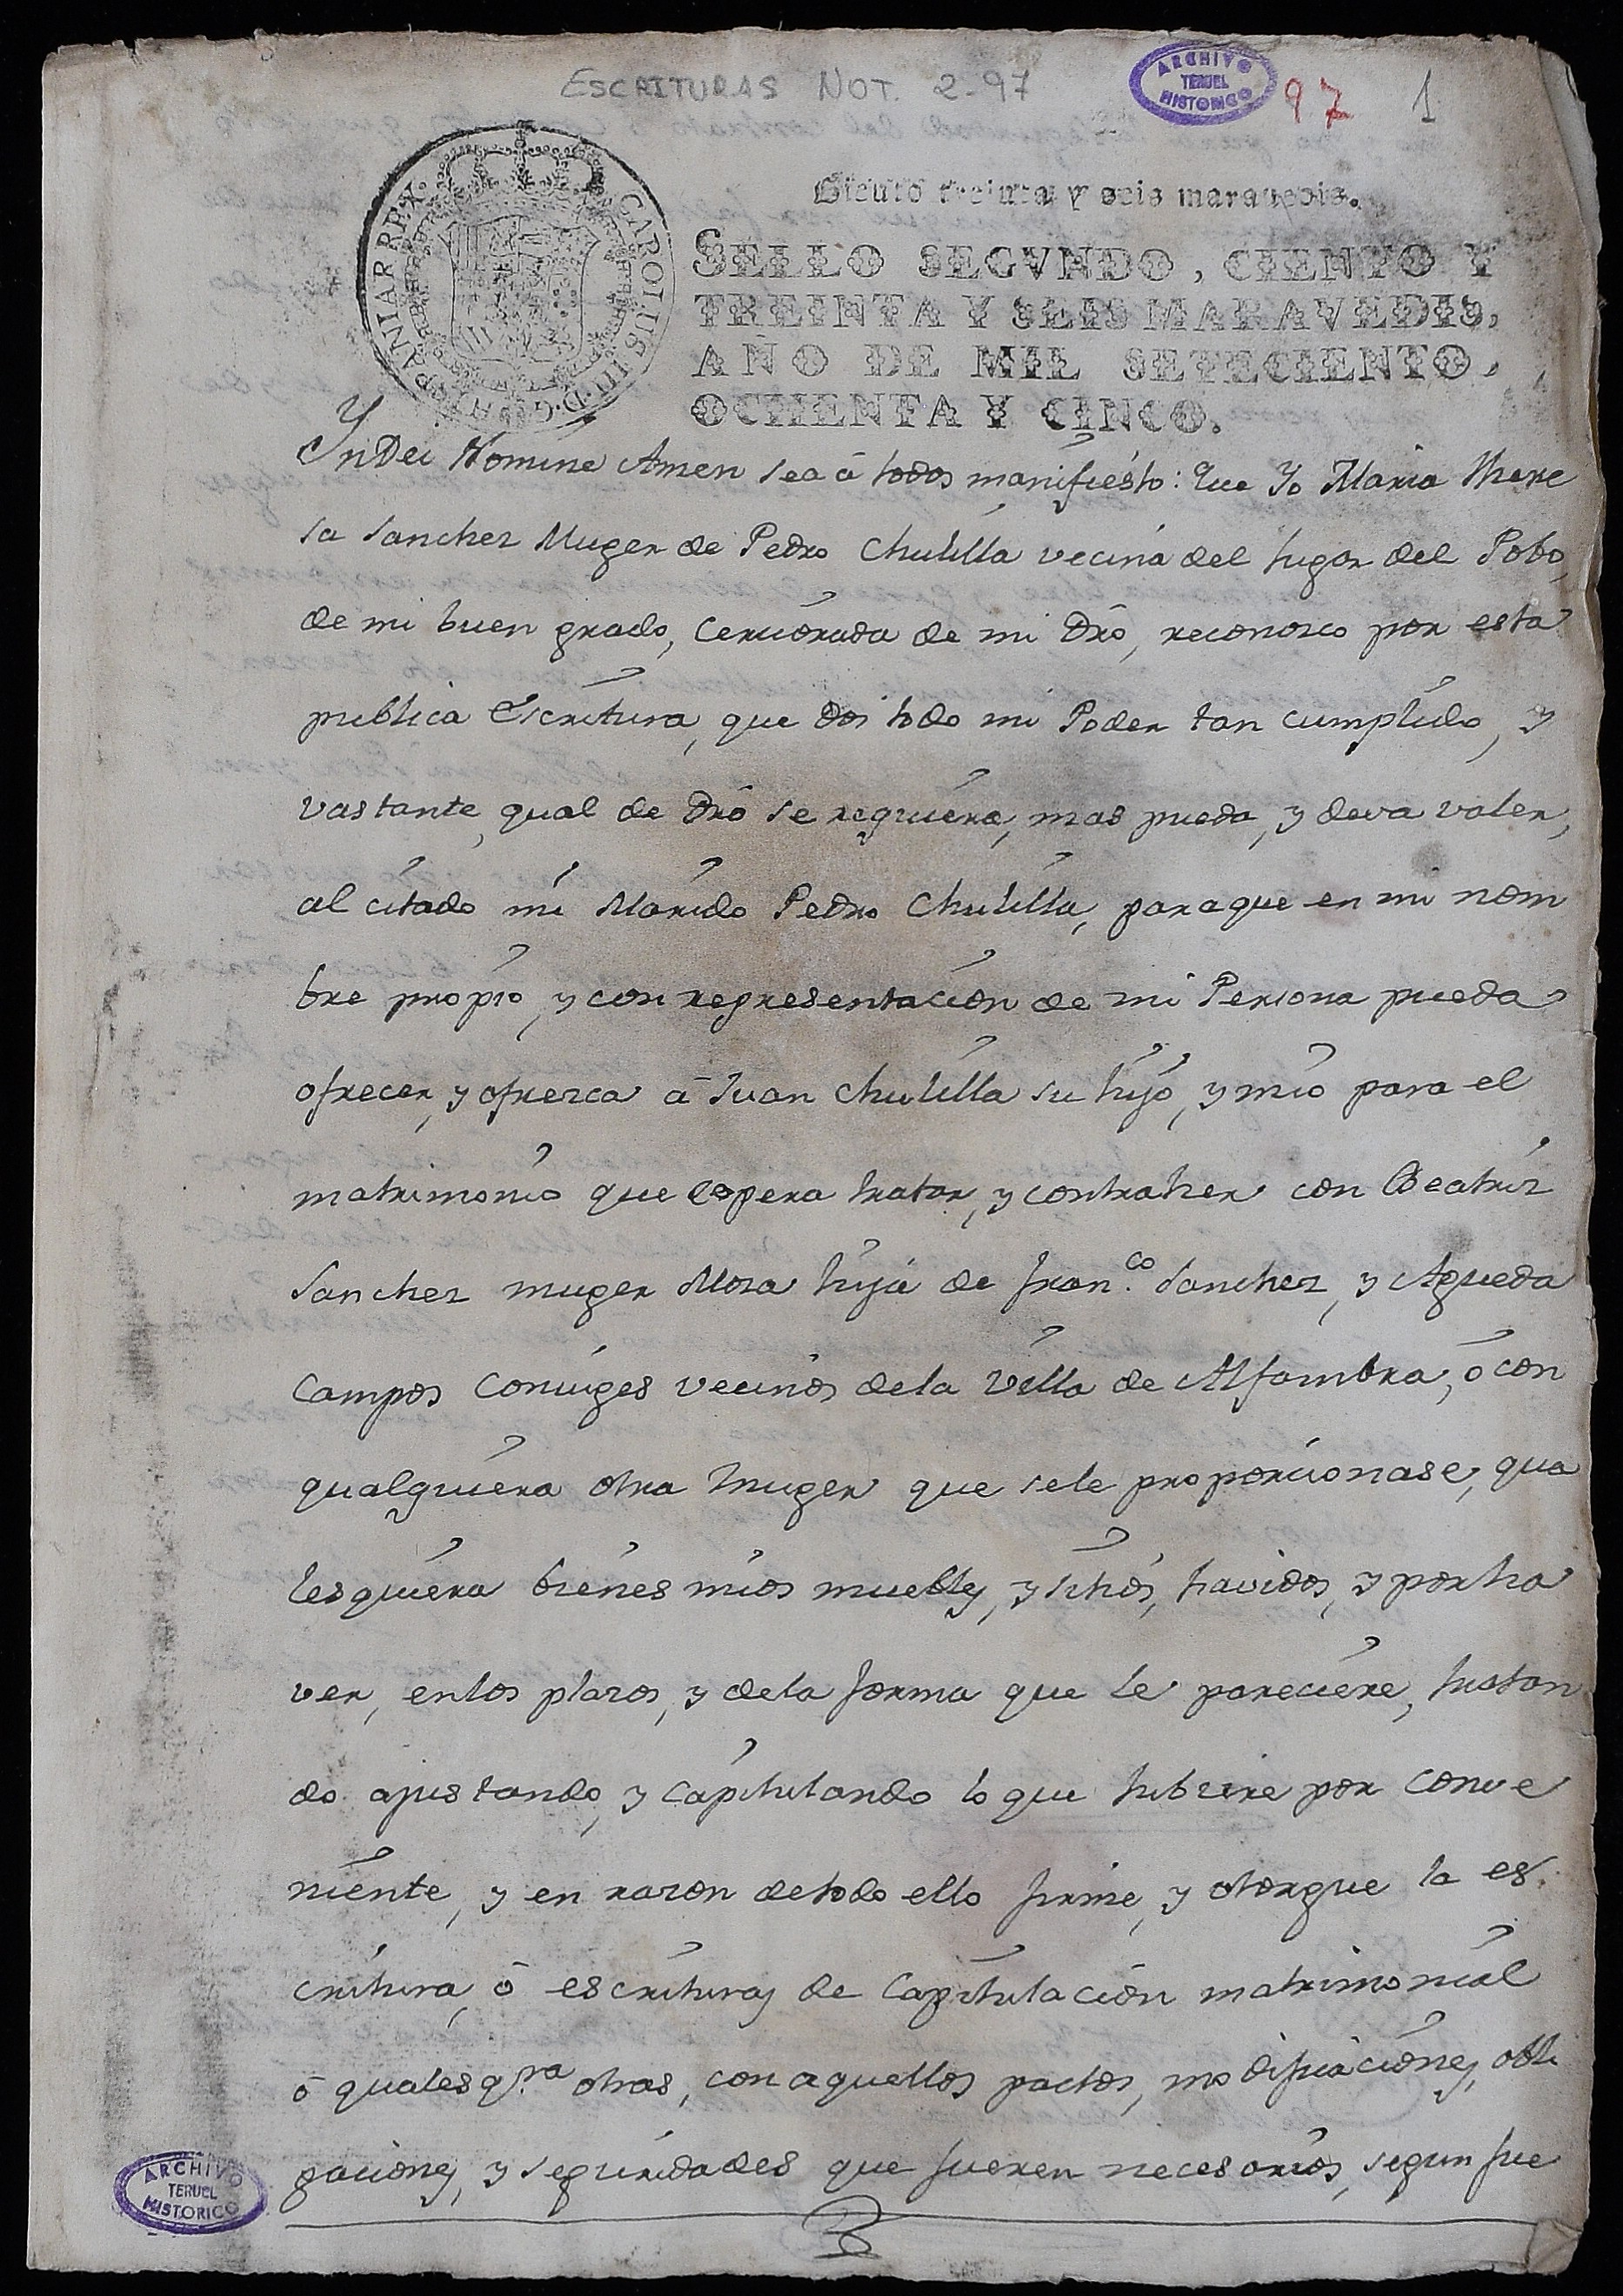 ESCRITURAS NOT. 2-97
ARCHIVO
TERUEL
HISTORICO
97
1
CAROLUS III. D. G. HISPANIAR REX.
Ciento treinta y seis maravedis.
SELLO SEGVNDO, CIENTO Y
TREINTA Y SEIS MARAVEDIS,
AÑO DE MIL SETECIENTO,
OCHENTA Y CINCO.
YnDei Nomine Amen sea â todos manifiesto: Que Yo Maria There
sa Sanchez Muger de Pedro Chulilla vecina del lugar del Pobo,
de mi buen grado, cerciorada de mi Dr̃o, reconozco por esta
publica Escritura, que doi todo mi Poder tan cumplido, y
vastante, qual de Dr̃o se requiera, mas pueda, y deva valer,
al citado mi Marido Pedro Chulilla, paraque en mi nom
bre propio, y con representacion de mi Persona pueda
ofrecer, y ofrezca â Juan Chulilla su hijo, y mio para el
matrimonio que espera tratar, y contraher con Beatriz
Sanchez muger Moza hija de Fran.co Sanchez, y Agueda
Campos Coniuges vecinos dela Villa de Alfambra, ô con
qualquiera otra Muger que sele proporcionase, qua
lesquiera bienes mios muebles, y sitios, havidos, y por ha
ver, enlos plazos, y dela forma que le pareciere, tratan
do ajustando, y Capitulando lo que tubiere por conve
niente, y en razon detodo ello firme, y otorgue la es
critura, ô escrituras de Capitulacion matrimonial
ô qualesq.ra otras, con aquellos pactos, modificaciones, obli
gaciones, y seguridades que fueren necesarios, segun fue
ARCHIVO
TERUEL
HISTORICO